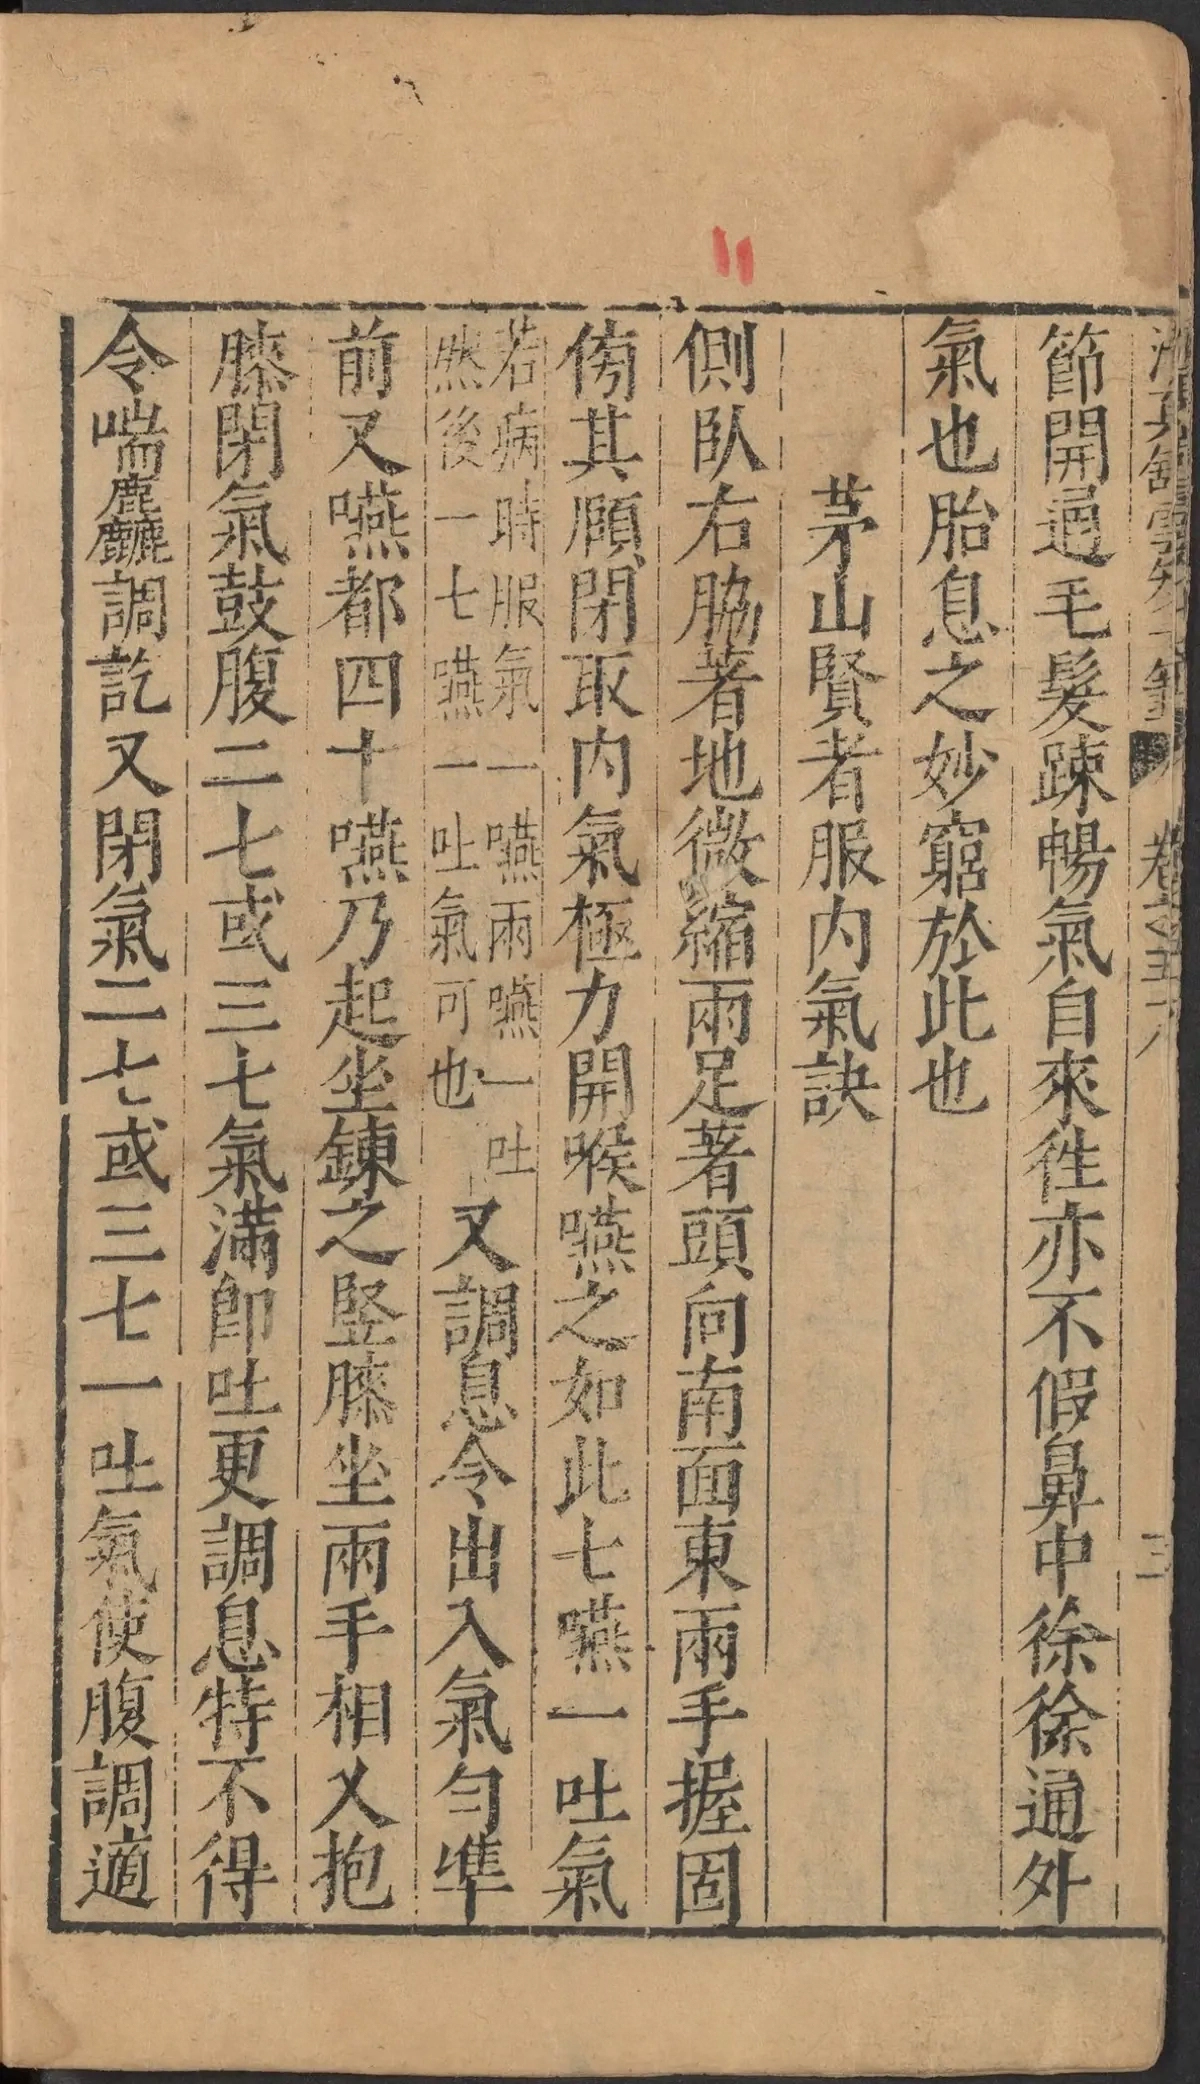 節開通毛髮踈暢氣自來徃亦不假鼻中徐徐通外
氣也胎息之妙窮於此也
茅山賢者服內氣訣
側臥右脇著地微縮兩足著頭向南面東兩手握固
傍其頤閉取內氣極力開喉嚥之如此七嚥一吐氣
若病時服氣一嚥兩嚥一吐
然後一七嚥一吐氣可也
又調息令出入氣勻準
前又嚥都四十嚥乃起坐鍊之竪膝坐兩手相叉抱
膝閉氣鼓腹二七或三七氣滿即吐更調息特不得
令喘麤調訖又閉氣二七或三七一吐氣使腹調適